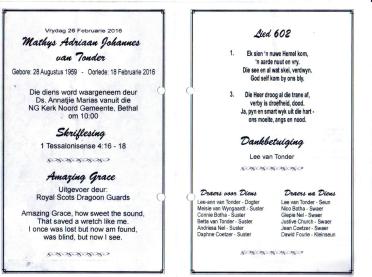 Vrydag 26 Februarie 2016
Mathys Adriaan Johannes
van Tonder
Gebore: 28 Augustus 1959 - Oorlede: 18 Februarie 2016
Die diens word waargeneem deur
Ds. Annatjie Marias vanuit die
NG Kerk Noord Gemeente, Bethal
om 10:00
Skriflesing
1 Tessalonisense 4:16 - 18
Amazing Grace
Uitgevoer deur:
Royal Scots Dragoon Guards
Amazing Grace, how sweet the sound,
That saved a wretch like me.
I once was lost but now am found,
was blind, but now I see.
Lied 602
1. Ek sien 'n nuwe Hemel kom,
'n aarde nuut en vry.
Die see en al wat skei, verdwyn.
God self kam by ons bly.
3. Die Heer droog al die trane af,
verby is droefheid, dood.
Ja, pyn en smart wyk uit die hart -
ons moeite, angs en nood.
Dankbetuiging
Lee van Tonder
Draers voor Diens
Lee-ann van Tonder - Dogter
Meisie van Wyngaardt - Suster
Connie Botha - Suster
Betta van Tonder - Suster
Andriesa Nel - Suster
Daphne Coetzer - Suster
Draers na Diens
Lee van Tonder - Seun
Nico Botha - Swaer
Giepie Nel - Swaer
Justive Church - Swaer
Jean Coetzer - Swaer
David Fourie - Kleinseun